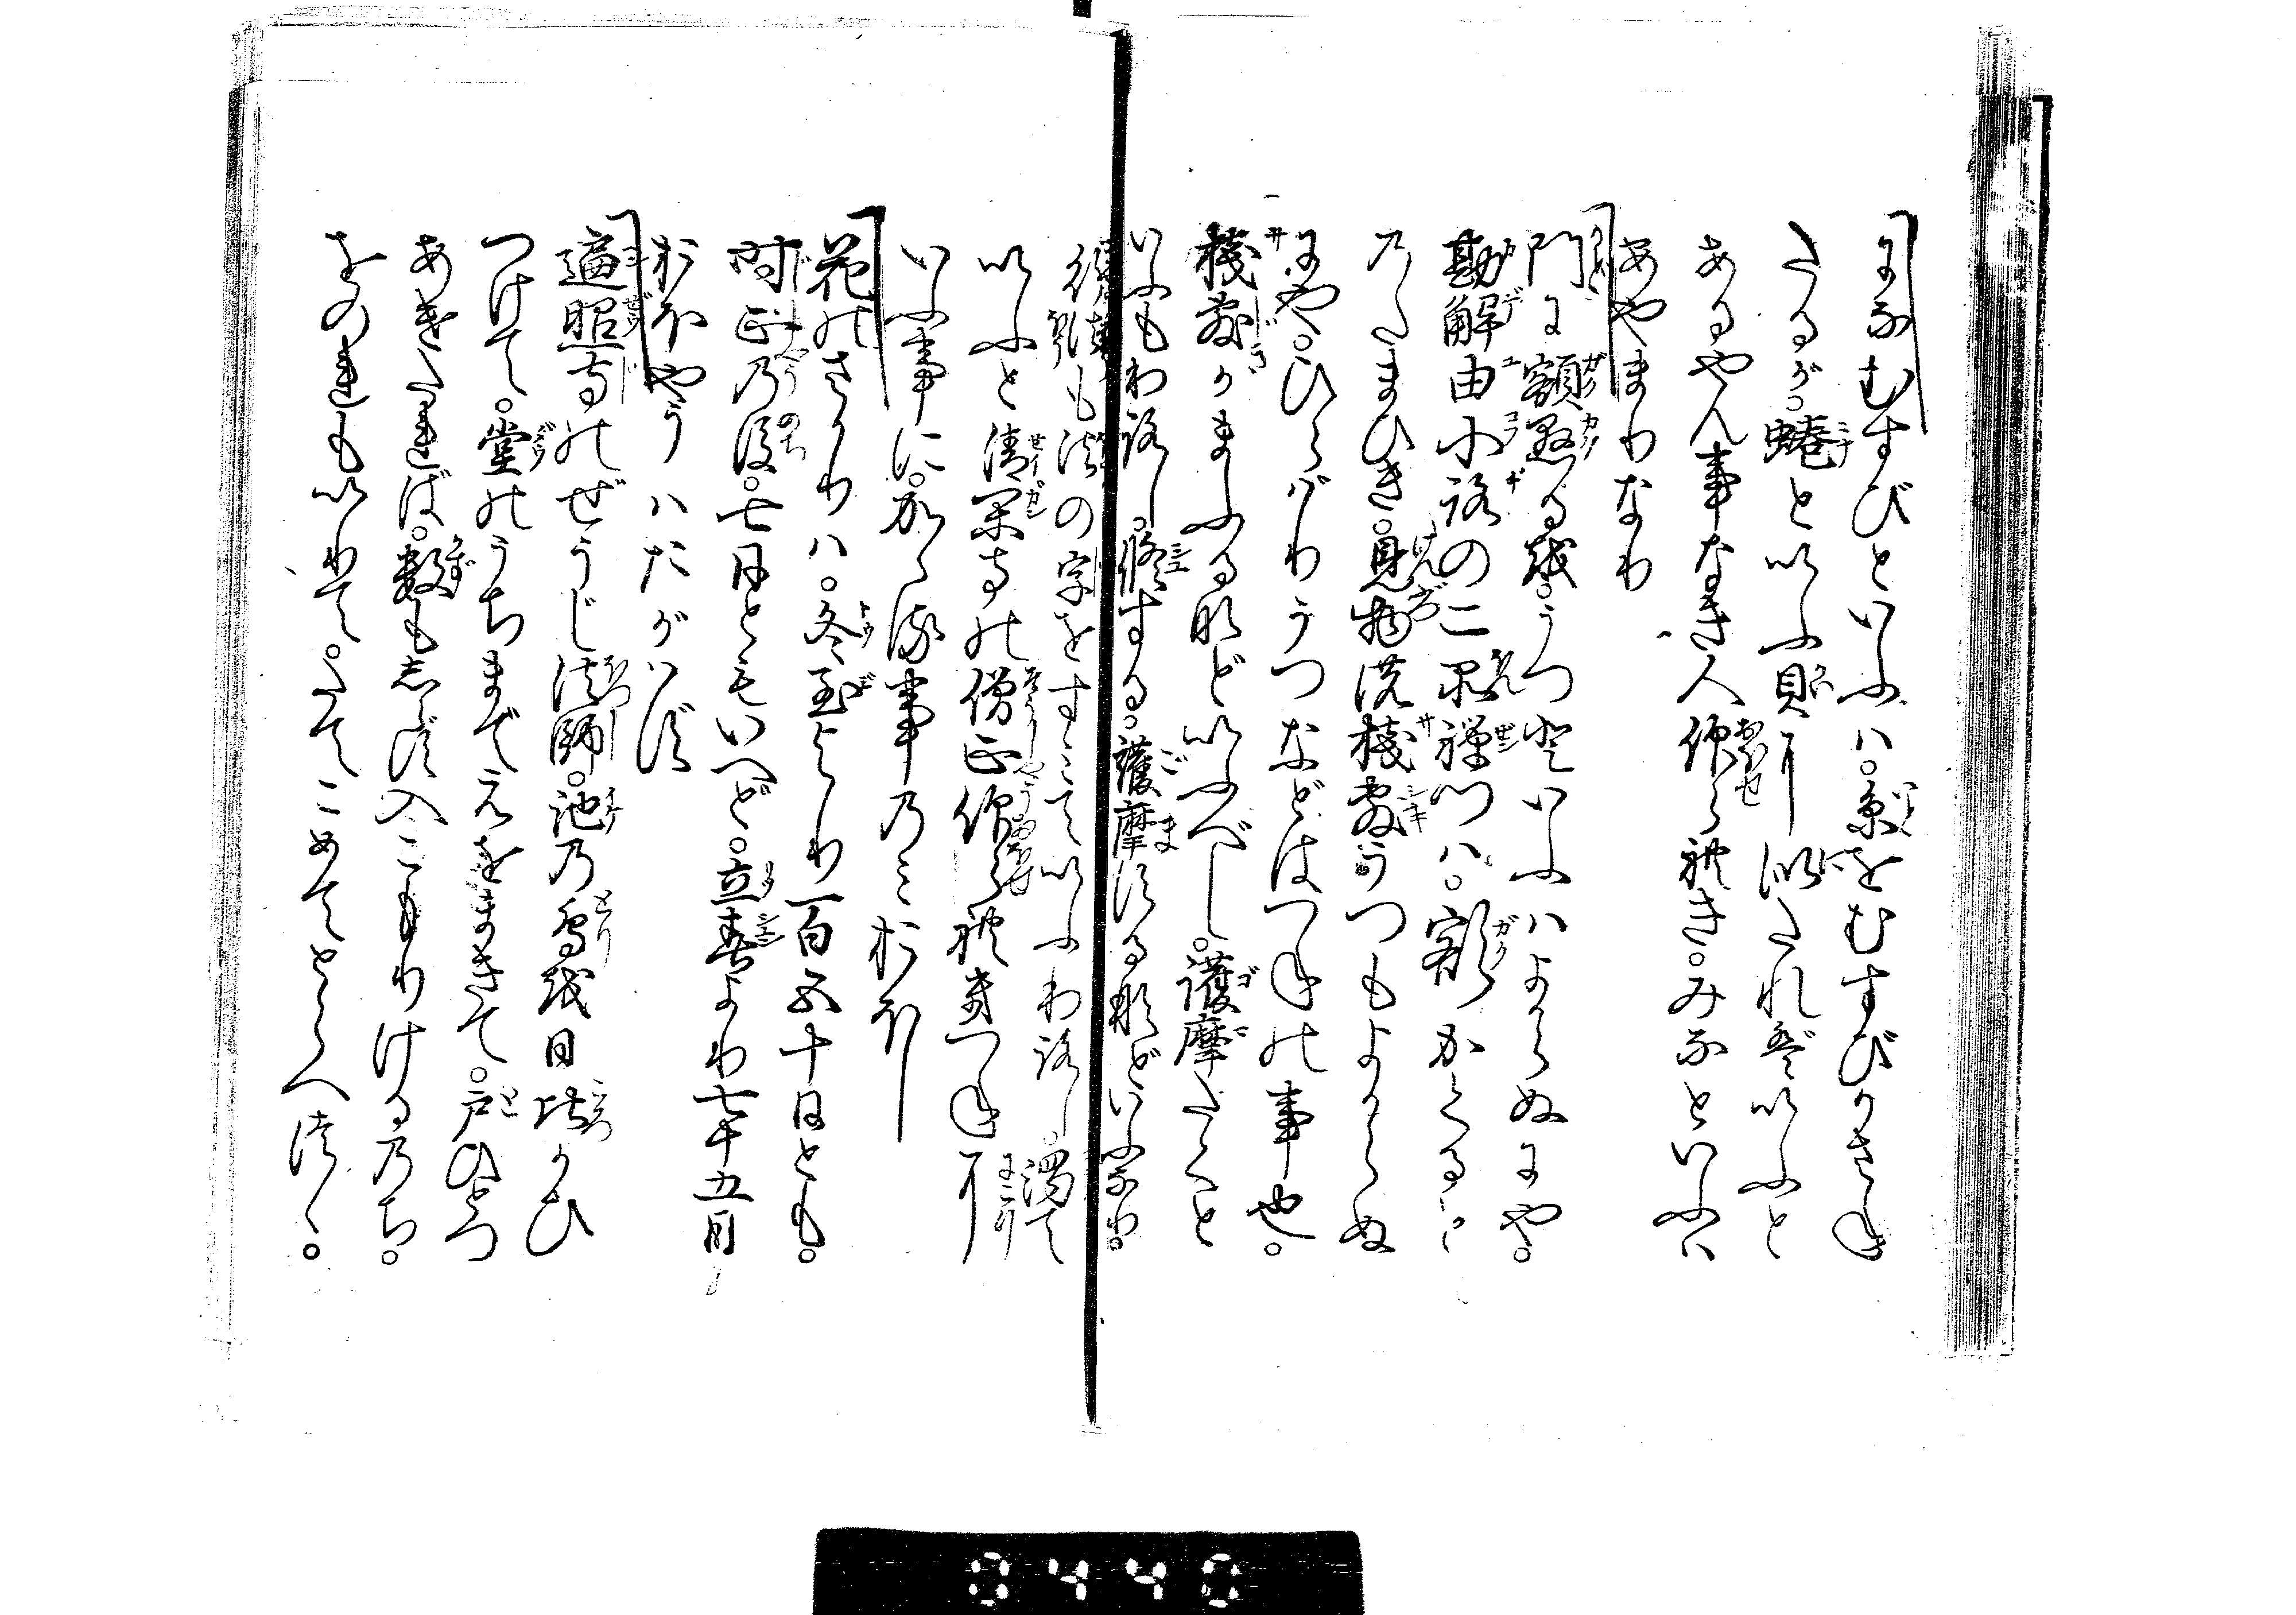 になむすびといふハ。糸をむすびかさね
たるが。蜷といふ貝に似たればいふと
あるやん事なき人仰られき。みなといふハ
あやまりなり
門に額懸るを。うつといふハよからぬにや。
勘解由小路の二品禅門ハ。額かくると
のたまひき。見物の桟敷うつもよからぬ
にや。ひらばりうつなどはつねの事也。
桟敷かまふるなどいふべし。護摩たくと
いふもわろし。修する。護摩するなどいふなり。
行法も法の字をすみていふわろし。濁て
いふと清閑寺の僧正仰られき。つねに
いふ事に。かゝる事のみおほし
花のさかりハ。冬至より一百五十日とも。
時正の後。七日ともいへど。立春より七十五日
おほやうハたがハず
遍照寺のぜうじ法師。池の鳥を日比かひ
つけて。堂のうちまでえをまきて。戸ひとつ
あけたれば。数もしらず入こもりけるのち。
をのれもいりて。たてこめてとらへつゝ。